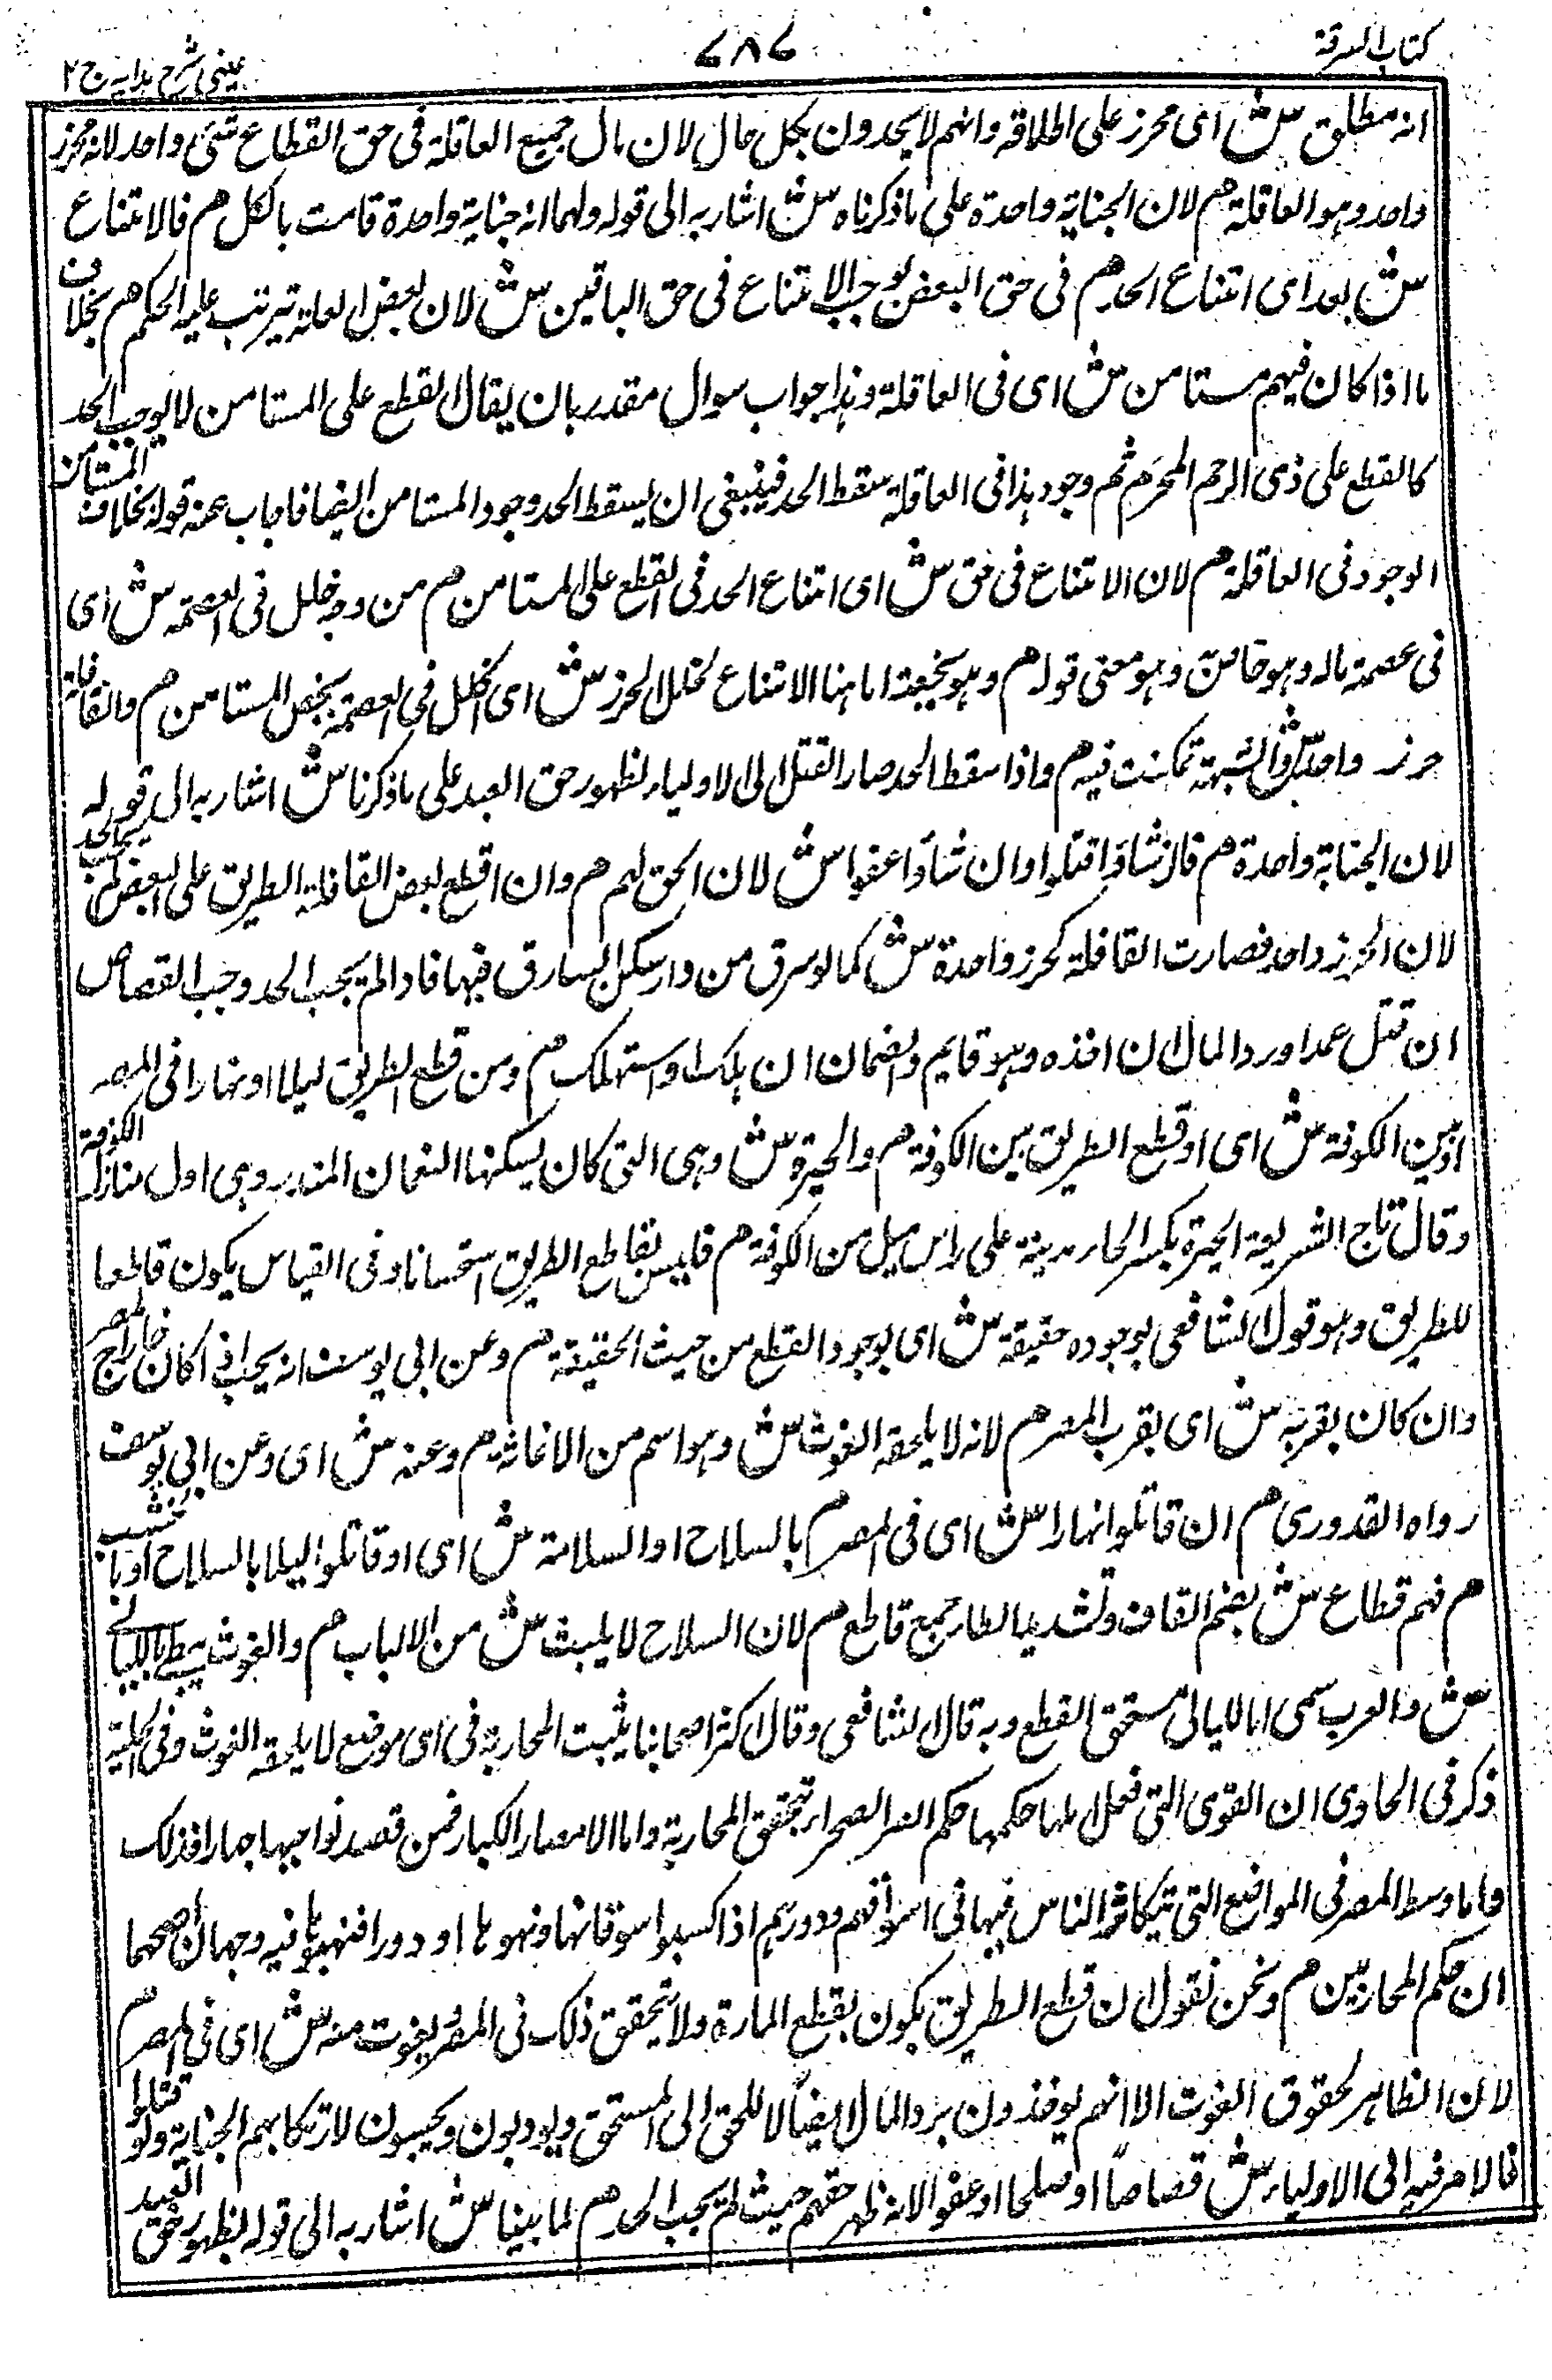 کتاب السرقة
٧٨٦
عینی شرح ہدایہ ج ٢
انه مطلق ش ای محرز علی اطلاقه وانهم لا یحدون بکل حال لان مال جمیع العاقلة فی حق القطاع شئ واحد لانه محرز
واحد وہو العاقلة م لان الجنایة واحدة علی ما ذکرناه ش اشار به الی قوله ولہما انه جنایة واحدة قامت بالکل م فالامتناع
ش بعد ای امتناع الحد م فی حق البعض یوجب الامتناع فی حق الباقین ش لان بعض العلة یترتب علیه الحکم م بخلاف
ما اذا کان فیہم مستامن ش ای فی العاقلة وہذا جواب سوال مقدر بان یقال القطع علی المستامن لا یوجب الحد
کالقطع علی ذی الرحم المحرم ثم وجود ہذا فی العاقلة سقط الحد فینبغی ان یسقط الحد وجود المستامن ایضا فاجاب عنه قوله بخلاف المستامن
الوجود فی العاقلة م لان الامتناع فی حق ش ای امتناع الحد فی القطع علی المستامن م من وجه خلل فی العصمة ش ای
فی عصمة ماله وہو خاص وہو معنی قوله م وہو یخصه اما ہنا الامتناع لخلل الحرز ش ای الخلل فی العصمة یخص المستامن م والقافلة
حرز واحد ش والشبهة تمکنت فیه م واذا سقط الحد صار القتل الی الاولیاء لظہور حق العبد علی ما ذکرنا ش اشار به الی قوله
لان الجنایة واحدة م فان شاؤا قتلوا وان شاؤا عفوا ش لان الحق لہم م وان اقطع بعض القافلة الطریق علی البعض لم یجب الحد
لان الحرز واحد فصارت القافلة کحرز واحدة ش کما لو سرق من دار یسکن السارق فیہا فاذا لم یجب الحد وجب القصاص
ان قتل عمدا ورد المال ان اخذه وہو قایم والضمان ان ہلک او استہلک م ومن قطع الطریق لیلا او نہارا فی المصر
او بین الکوفة ش ای او قطع الطریق بین الکوفة م والحیرة ش وہی التی کان یسکنہا النعمان المنذر وہی اول منازل الکوفة
وقال تاج الشریعة الحیرة بکسر الحاء مدینة علی راس میل من الکوفة م فلیس بقاطع الطریق استحسانا وفی القیاس یکون قاطعا
للطریق وہو قول الشافعی لوجوده حقیقة ش ای لوجود القطع من حیث الحقیقة م وعن ابی یوسف انه یجب اذا کان خارج المصر
وان کان بقربه ش ای بقرب المصر م لانه لا یلحقه الغوث ش وہو اسم من الاغاثة م وعنه ش ای وعن ابی یوسف
رواه القدوری م ان قاتلوا نہارا ش ای فی المصر م بالسلاح او السلامة ش ای او قاتلوا لیلا بالسلاح او بالخشب
م فہم قطاع ش بضم القاف وتشدید الطاء جمع قاطع م لان السلاح لا یلبث ش من الالباب م والغوث یبطی باللیالی
ش والعرب سمی ابالایالی مستحق القطع وبه قال الشافعی وقال اکثر اصحابنا یثبت المحاربة فی ای موضع لا یلحقه الغوث وفی الحلیة
ذکر فی الحاوی ان القوی التی فعل اہلہا حکمہا حکم الصحراء تحقق المحاربة واما الامصار الکبار فمن قصد نواحیہا جہارا فذلک
واما وسط المصر فی المواضع التی یتکاثر الناس فیہا فی اسواقہم ودورہم اذا کسبوا سوقا فنہبوها او دورا فنہبوها فیه وجہان اصحہما
ان حکم المحاربین م ونحن نقول ان قطع الطریق یکون بقطع المارة ولا یتحقق ذلک فی المصر بغوث منه ش ای فی المصر م
لان الظاہر لحقوق الغوث الا انہم یوخذون برد المال ایضا للحق الی المستحق ویودبون ویحبسون لارتکابہم الجنایة ولو قتلوا
فالامر فیه الی الاولیاء ش قصاصا او صلحا او عفوا لانه ظہر حقہم حیث لم یجب الحد م لما بینا ش اشار به الی قوله لظہور حق العبد